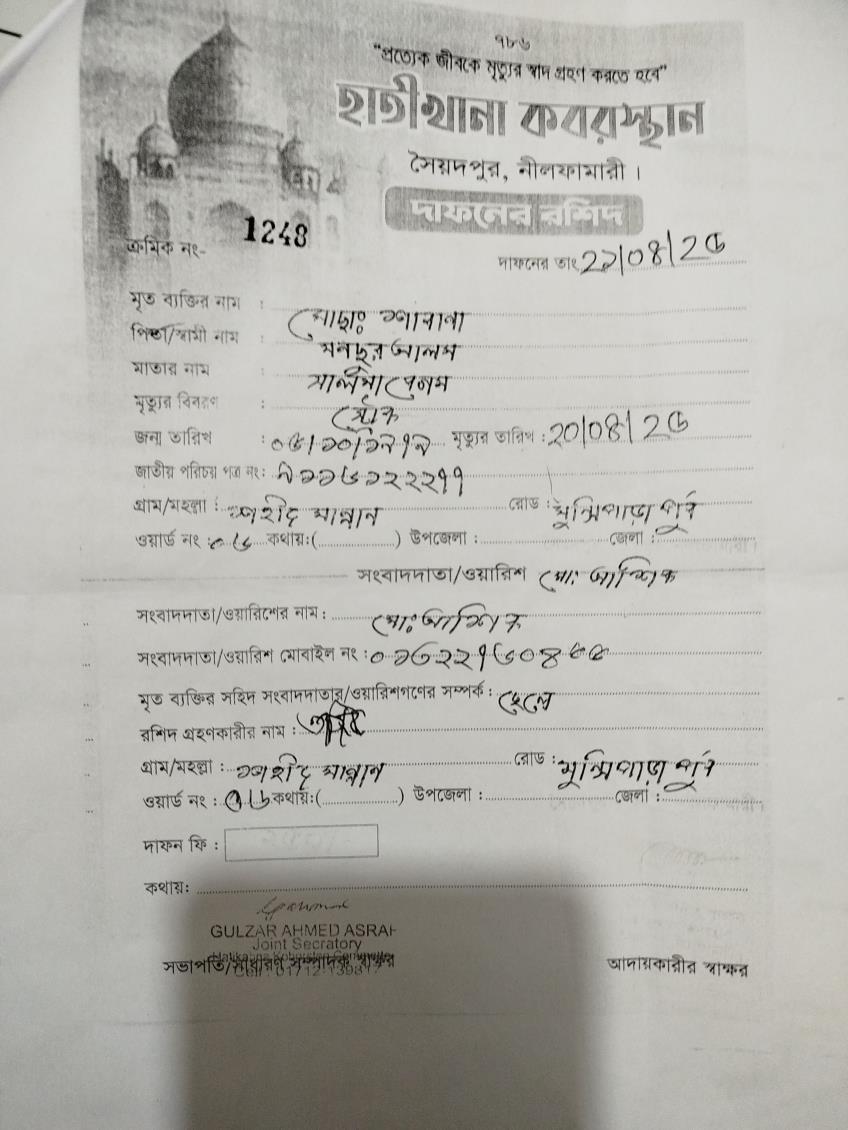 ৭৮৬
"প্রত্যেক জীবকে মৃত্যুর স্বাদ গ্রহণ করতে হবে"
হাতীখানা কবরস্থান
সৈয়দপুর, নীলফামারী ।
দাফনের রশিদ
ক্রমিক নং- 1248
দাফনের তাং
মৃত ব্যক্তির নাম : মোছাঃ শাবানা
পিতা/স্বামী নাম : মনছুর আলম
মাতার নাম : সালমা বেগম
মৃত্যুর বিবরণ :
জন্ম তারিখ : মৃত্যুর তারিখ :
জাতীয় পরিচয় পত্র নং:
গ্রাম/মহল্লা : শহীদ মান্নান রোড : মুন্সিপাড়া পূর্ব
ওয়ার্ড নং : কথায়:( ) উপজেলা : জেলা :
সংবাদদাতা/ওয়ারিশ মো: আশিক
সংবাদদাতা/ওয়ারিশের নাম : মো: আশিক
সংবাদদাতা/ওয়ারিশ মোবাইল নং :
মৃত ব্যক্তির সহিত সংবাদদাতার/ওয়ারিশগণের সম্পর্ক : ছেলে
রশিদ গ্রহণকারীর নাম :
গ্রাম/মহল্লা : শহীদ মান্নান রোড : মুন্সিপাড়া পূর্ব
ওয়ার্ড নং : কথায়:( ) উপজেলা : জেলা :
দাফন ফি :
কথায়:
GULZAR AHMED ASRAF
Joint Secratory
সভাপতি/সাধারণ সম্পাদক স্বাক্ষর
আদায়কারীর স্বাক্ষর